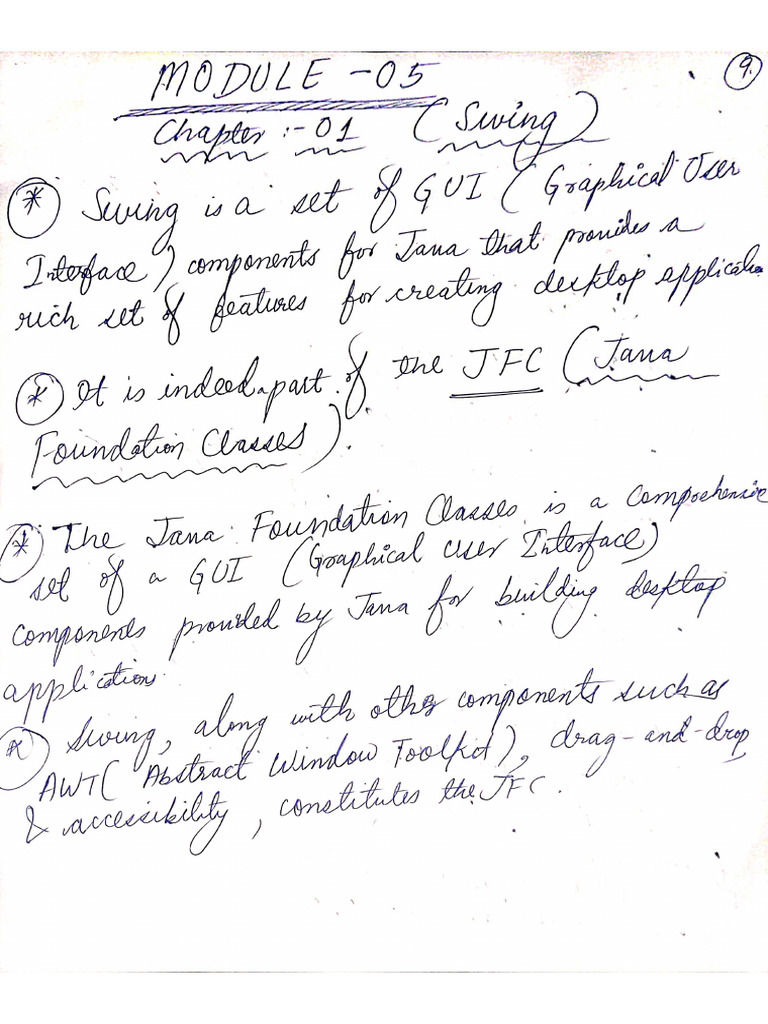 MODULE -05
9.
Chapter :- 01 (Swing)
* Swing is a set of GUI (Graphical User
Interface) components for Java that provides a
rich set of features for creating desktop application
* It is indeed part of the JFC (Java
Foundation Classes).
* The Java Foundation Classes is a comprehensive
set of a GUI (Graphical User Interface)
components provided by Java for building desktop
application.
* Swing, along with other components such as
AWT (Abstract Window Toolkit), drag-and-drop
& accessibility, constitutes the JFC.